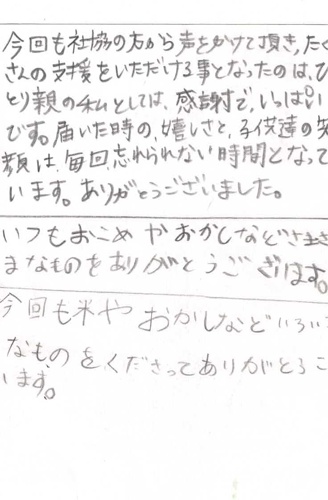 今回も社協の方から声をかけて頂き,たく
さんの支援をいただける事となったのは、ひ
とり親の私としては、感謝で、いっぱい
です。届いた時の、嬉しさと、子供達の笑
顔は、毎回、忘れられない時間となって
います。ありがとうございました。
いつもおこめ やおかしなどさまざ
まなものをありがとうございます。
今回も米や おかしなどいろいろ
なものをくださってありがとうご
います。